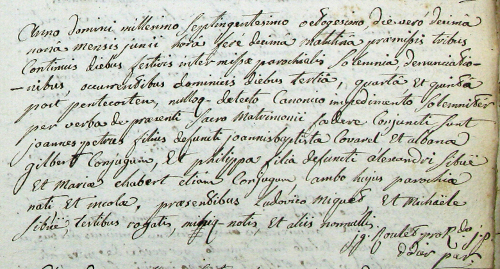 Anno domini millesimo septingentesimo octogesimo die vero decima
nona mensis junii hora fere decima matutina præmissis tribus
continuis diebus festivis inter missæ parochialis solemnia denunciatio-
-nibus, occurrentibus dominicis diebus tertia, quarta et quinta
post pentecosten, nulloq. detecto Canonico impedimento solemniter
per verba de præsenti sacro Matrimonii fœdere Conjuncti sunt
joannes petrus filius defuncti joannis baptistæ Covarel et albanæ
gilbert Conjugum, Et philippa filia defuncti alexandri sibue
Et Mariæ chabert etiam Conjugum ambo hujus parochiæ
nati et incolæ, præsentibus Ludovico miguet Et Michaele
sibue testibus rogatis, mihiq. notis et aliis nonnullis.
Sig. Roulet pro Rdo